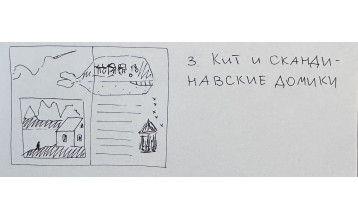 3. КИТ И СКАНДИ-
НАВСКИЕ ДОМИКИ